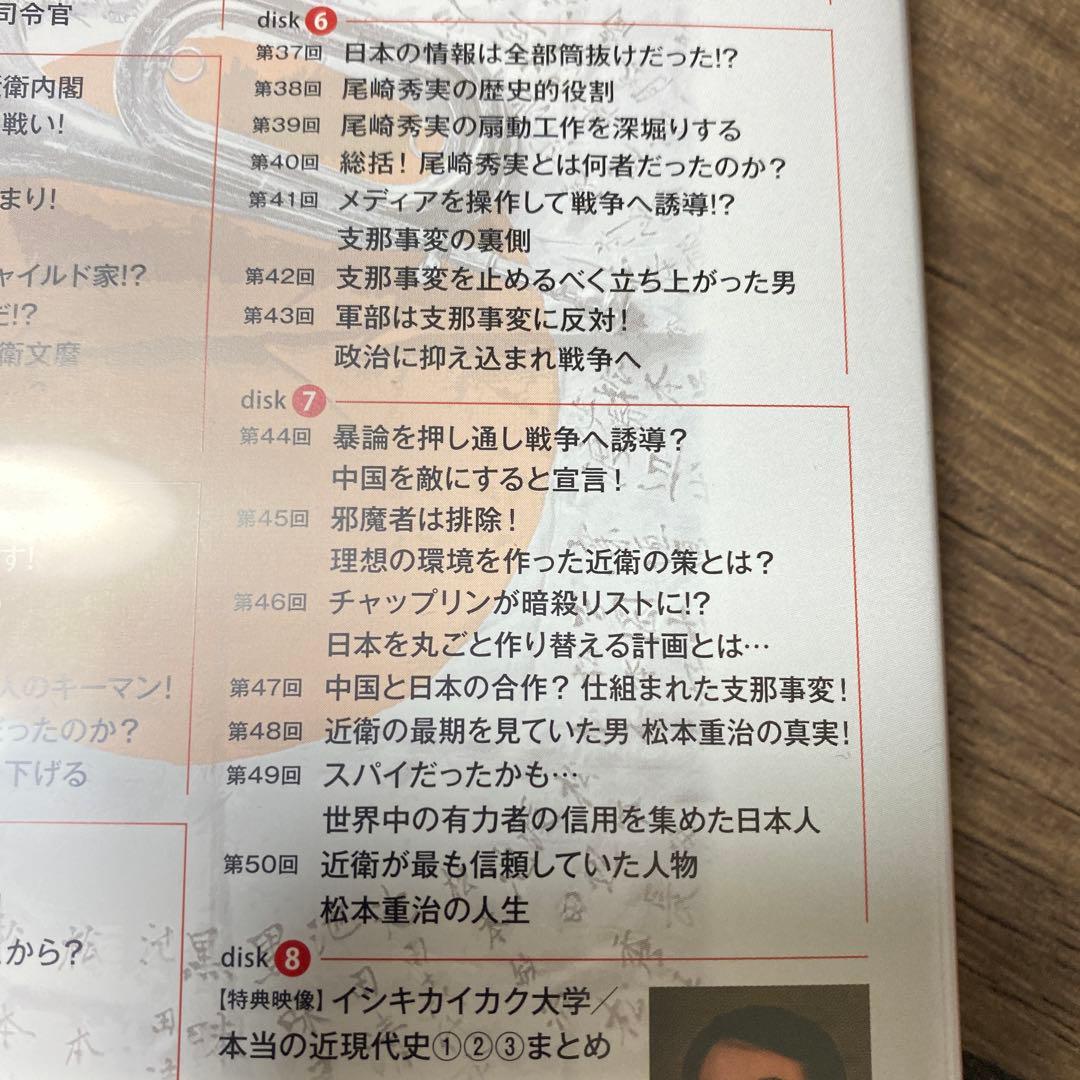 司令官
衛内閣
戦い!
まり!
ャイルド家!?
だ!?
衛文麿
す!
人のキーマン!
だったのか?
下げる
から?
disk 6
第37回 日本の情報は全部筒抜けだった!?
第38回 尾崎秀実の歴史的役割
第39回 尾崎秀実の扇動工作を深堀りする
第40回 総括! 尾崎秀実とは何者だったのか?
第41回 メディアを操作して戦争へ誘導!?
支那事変の裏側
第42回 支那事変を止めるべく立ち上がった男
第43回 軍部は支那事変に反対!
政治に抑え込まれ戦争へ
disk 7
第44回 暴論を押し通し戦争へ誘導?
中国を敵にすると宣言!
第45回 邪魔者は排除!
理想の環境を作った近衛の策とは?
第46回 チャップリンが暗殺リストに!?
日本を丸ごと作り替える計画とは…
第47回 中国と日本の合作? 仕組まれた支那事変!
第48回 近衛の最期を見ていた男 松本重治の真実!
第49回 スパイだったかも…
世界中の有力者の信用を集めた日本人
第50回 近衛が最も信頼していた人物
松本重治の人生
disk 8
【特典映像】イシキカイカク大学/
本当の近現代史①②③まとめ